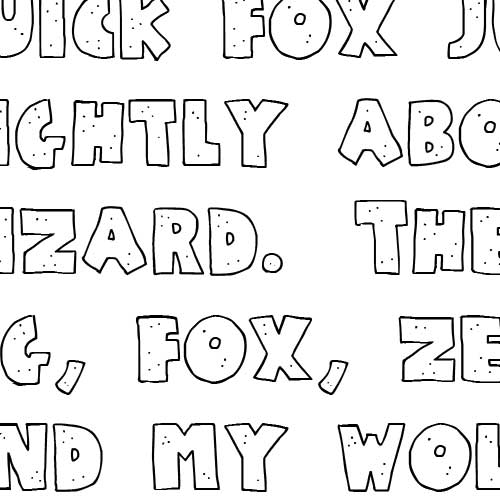 UICK FOX JU
IGHTLY ABO
IZARD. THE
G, FOX, ZE
ND MY WOL